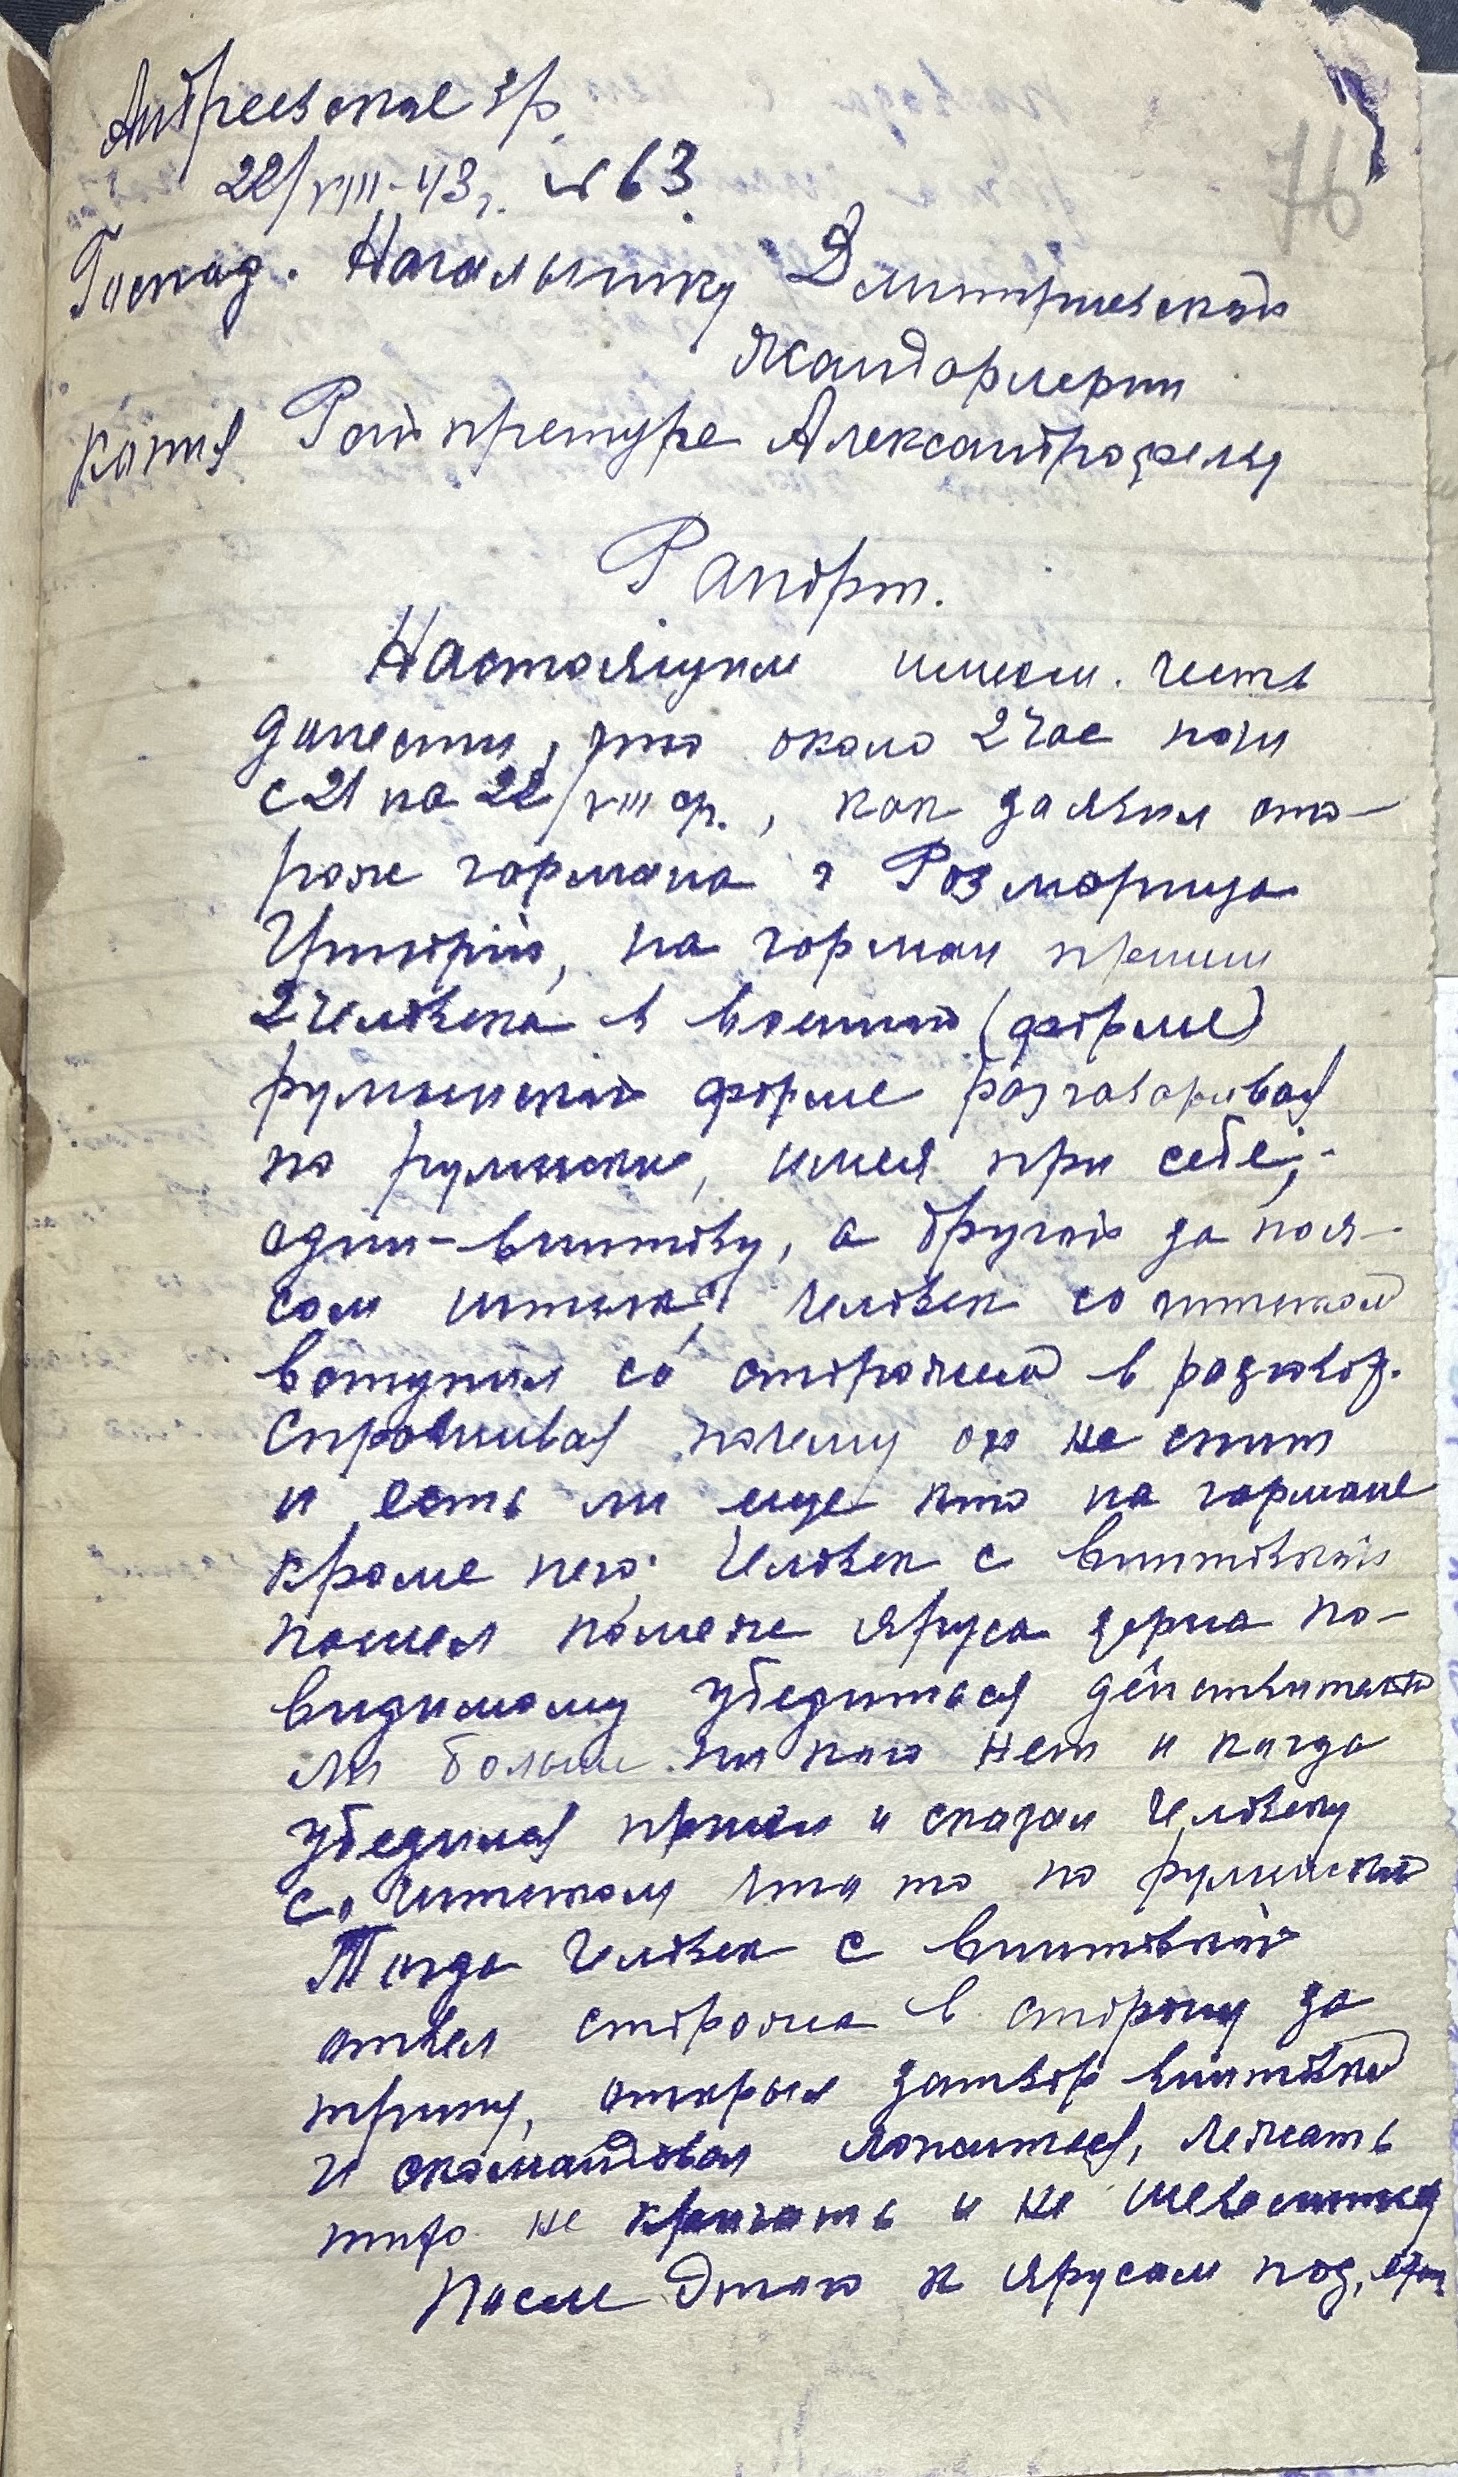 Андреевское
22/VIII-43 г. № 63.
76
Господ. Начальнику Дмитриевской
жандармерии
Копия Райпретуре Александрофельд
Рапорт.
Настоящим имеем честь
донести, что около 2 час ночи
с 21 на 22/VIII, как заявил сто-
рож гармана
Григорий, на гарман пришли
2 человека в военной (форме)
румынской форме разговаривая
по румынски, имея при себе;-
один-винтовку, а другой за поя-
сом штык, человек со штыком
вступил со сторожем в разговор.
Спрашивая почему он не спит
и есть ли еще кто на гармане
кроме него. Человек с винтовкой
пошел помеже яруса зерна по-
видимому убедиться действительно
ли больше никого нет и когда
убедился пришел и сказал человеку
со штыком что то по румынски
Тогда человек с винтовкой
отвел сторожа в сторону за
открыл затвор винтовки
и скомандовал ложиться, лежать
тихо не кричать и не шевелиться
После этого к ярусам